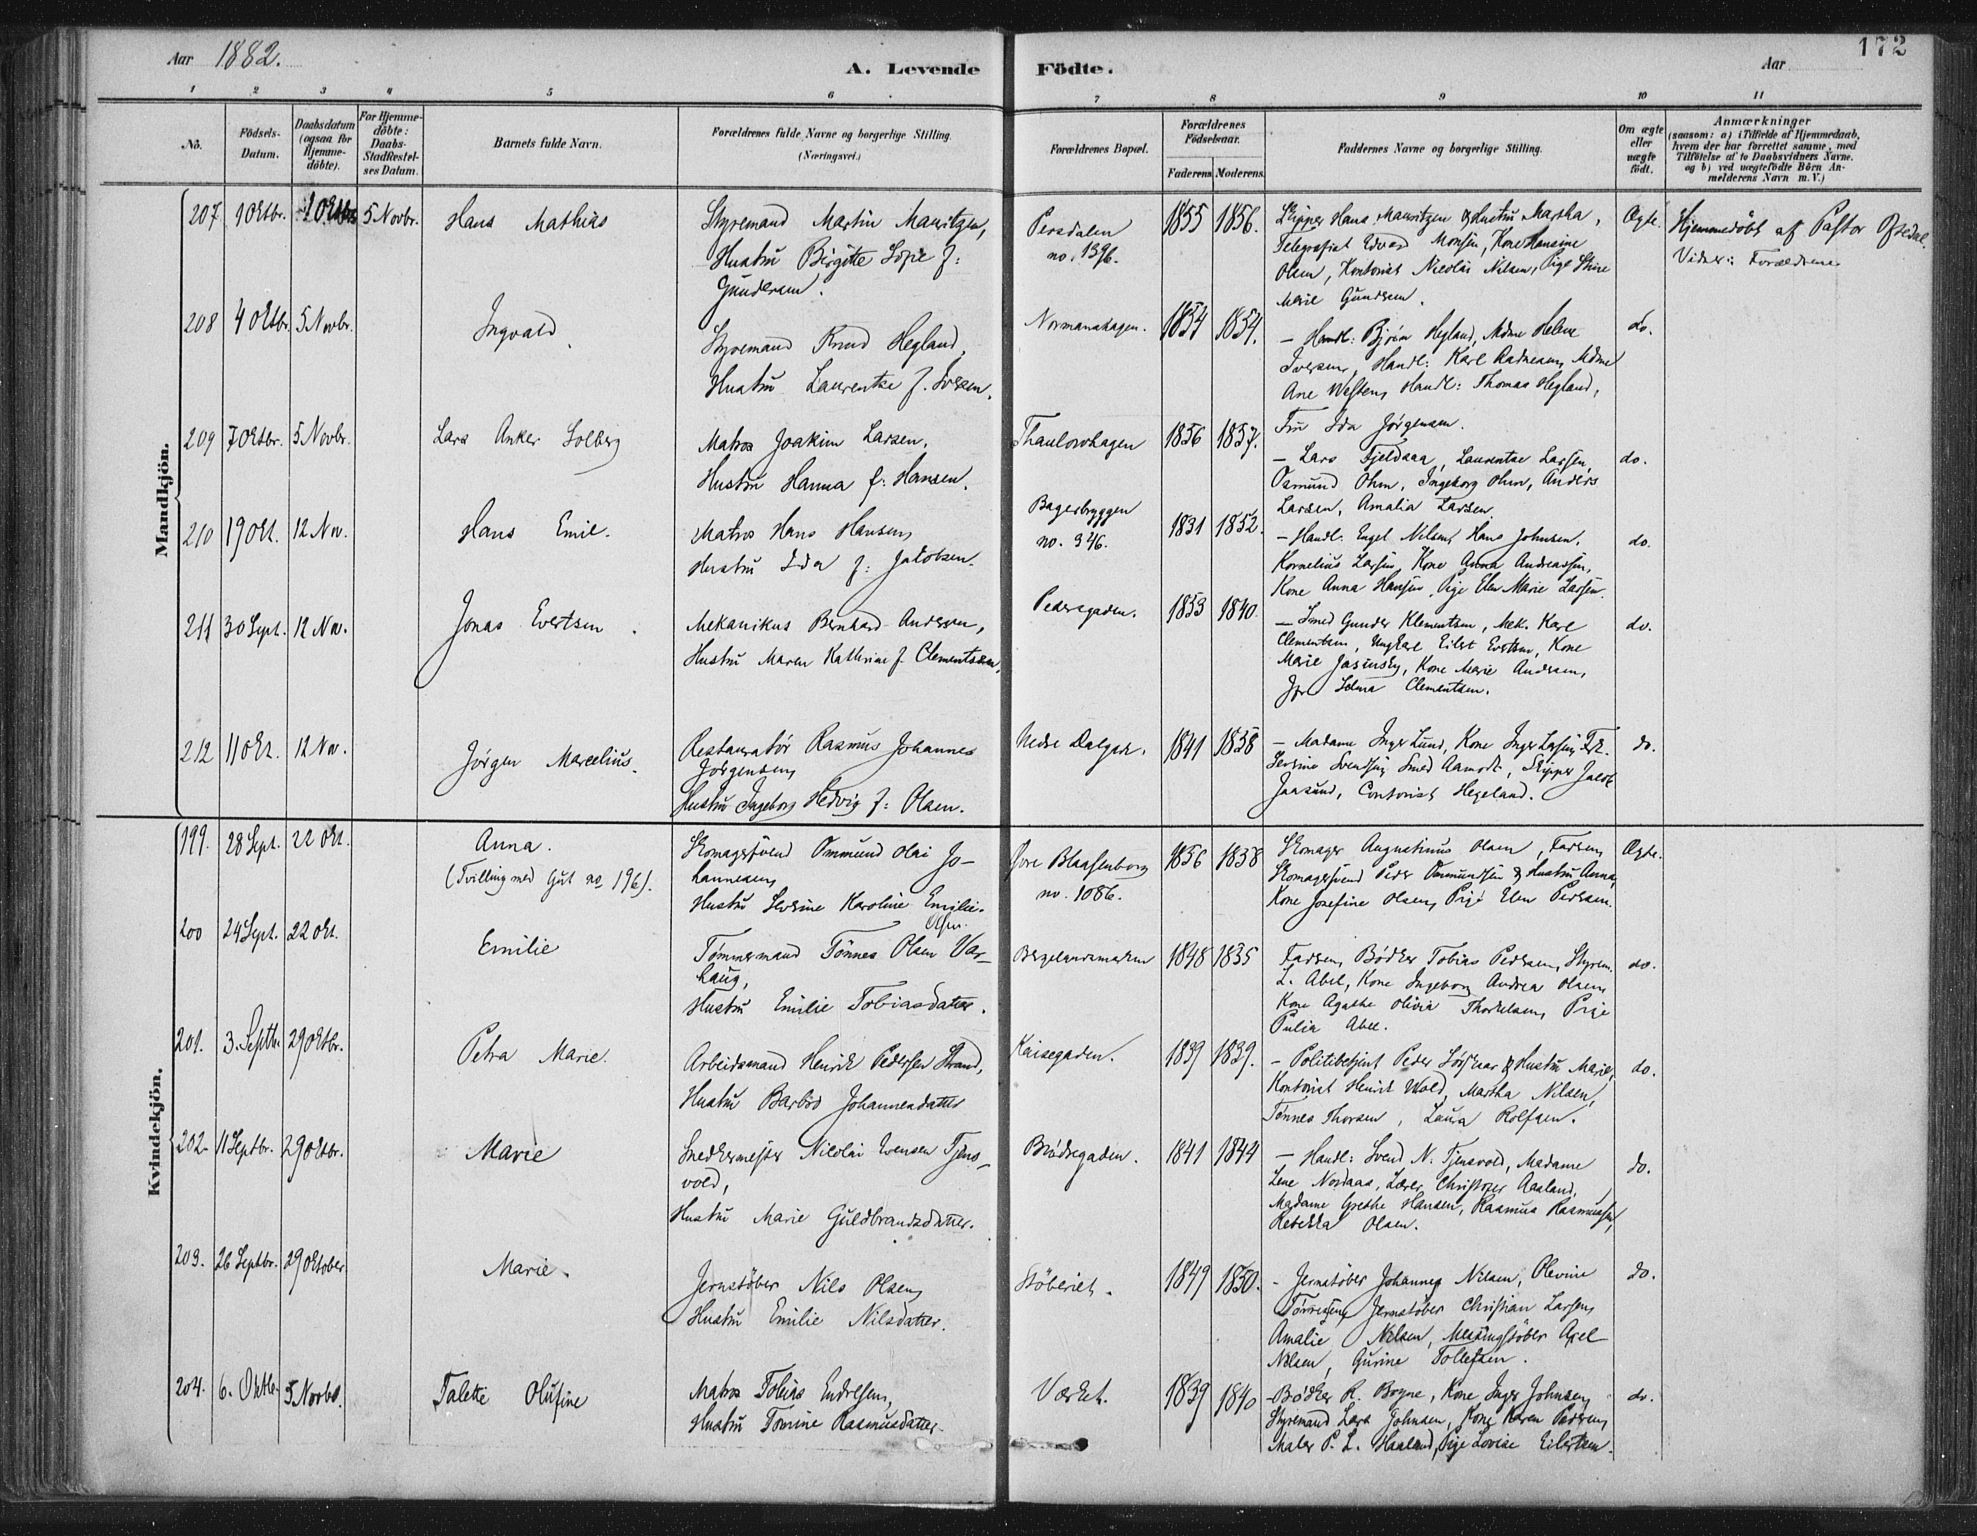 172
Aar 1882.
A. Levende Födte.
Aar
1 2 3 4 5 6 7 8 9 10 11
No.
Födsels-
Datum.
Daabsdatum
(ogsaa for
Hjemme-
döbte).
For Hjemme-
döbte:
Daabs-
Stadfæstel-
ses Datum.
Barnets fulde Navn.
Forældrenes fulde Navne og borgerlige Stilling.
(Næringsvei.)
Forældrenes Bopæl.
Forældrenes
Födselsaar.
Faderens Moderens
Faddernes Navne og borgerlige Stilling.
Om ægte
eller
uægte
födt.
Anmærkninger
(saasom: a) i Tilfælde af Hjemmedaab,
hvem der har forrettet samme, med
Tilföielse af to Daabsvidners Navne.
og b) ved uægtefödte Börn An-
melderens Navn m. V.)
Mandkjön.
207 1 Oktbr. 1 Oktbr 5 Novbr. Hans Mathias
Styremand Martin Mauritzen,
Hustru Birgitte Sofie f:
Gundersen.
Persdalen
no. 1376.
1855 1856.
Skipper Hans Mauritzen & Hustru Martha,
Telegrafist Edvard Monsen, Kone Hansine
Olsen, Kontorist Nicolai Nilsen, Pige Stine
Marie Gundsen.
Ægte.
Hjemmedöbt af Pastor Oftedal.
Vidner: Forældrene
208 4 Oktbr. 5 Novbr. Ingvald
Styremand Knud Hegland,
Hustru Laurentze f. Iversen.
Normanshagen.
1854 1854.
– Handl: Björn Hegland, Mdme Helene
Iversen, Handl: Karl Andreasen, Mdme
Ane Westens, Handl: Thomas Hegland,
Fru Ida Jörgensen.
do.
209 7 Oktbr. 5 Novbr. Lars Anker Solberg
Matros Joakim Larsen,
Hustru Hanna f: Hansen.
Thaulowhagen
1856 1857.
– Lars Fjeldaaa, Laurentze Larsen,
Osmund Ohm, Ingeborg Ohm, Anders
Larsen, Amalia Larsen.
do.
210 19 Okt. 12 Nov. Hans Emil.
Matros Hans Hansen,
Hustru Ida f: Jakobsen.
Bagerbryggen
no. 346.
1831 1852.
– Handl: Engel Nilsen, Hans Johnsen,
Kornelius Larsen, Kone Anna Andreassen,
Kone Anna Hansen, Pige Elen Marie Larsen.
do.
211 30 Sept. 12 Nov. Jonas Evertsen.
Mekanikus Bernhard Andersen,
Hustru Maren Kathrine f. Clementsen,
Pedersgaden.
1853 1840.
– Smed Gunder Klementsen, Mek. Karl
Clementsen, Ungkarl Eilert Evertsen, Kone
Marie Jasinsky, Kone Marie Andersen,
Jfr Selma Clementsen.
do.
212 11 Okt. 12 Nov. Jörgen Marcelius.
Restauratör Rasmus Johannes
Jörgensen,
Hustru Ingeborg Hedvig f: Olsen.
Nedre Dalgade.
1841 1858
– Madame Inger Lund, Kone Inger Larsen, Frk.
Severine Svendsen, Smed Aamodt, Skipper Jacob
Jaasund, Contorist Hegeland.
do.
Kvindekjön.
199. 28 Sept. 22 Okt. Anna.
(Tvilling med Gut no 196).
Skomagersvend Ommund Olai Jo-
hannesen,
Hustru Severine Karoline Emilie
Olsen.
Övre Blaasenborg
no. 1086.
1856 1858
Skomager Augustinus Olsen, Faderen,
Skomagersvend Peder Ommundsen & Hustru Anna,
Kone Josefine Olsen, Pige Elen Pedersen.
Ægte.
200 24 Sept. 22 Okt. Emilie
Tömmermand Tönnes Olsen Var-
haug,
Hustru Emilie Tobiasdatter.
Bergelandsmarken
1848 1855
Faderen, Bödker Tobias Pedersen, Styrem.
L. Abel, Kone Ingeborg Andrea Olsen,
Kone Agathe Olivia Thorkelsen, Pige
Julia Abel.
do.
201. 3. Septbr. 29 Oktbr. Petra Marie.
Arbeidsmand Henrik Pedersen Strand,
Hustru Barbro Johannesdatter
Kaisegaden.
1839 1839.
– Politibetjent Peder Sörskaar & Hustru Marie,
Kontorist Henrik Wold, Martha Nilsen,
Tönnes Thorsen, Laura Rolfsen.
do.
202. 11 Septbr. 29 Oktbr. Marie
Snedkermester Nicolai Evensen Tjens-
vold,
Hustru Marie Guldbrandsdatter.
Brödregaden.
1841 1844
– Handl: Svend N. Tjensvold, Madame
Lene Nordaas, Lærer Christofer Aaland,
Madame Grethe Hansen, Rasmus Rasmussen,
Rebekka Olsen.
do.
203. 26 Septbr. 29 Oktober. Marie.
Jernstöber Nils Olsen,
Hustru Emilie Nilsdatter.
Stöberiet.
1849 1850.
– Jernstöber Johannes Nilsen, Olevine
Törresen, Jernstöber Christian Larsen,
Amalie Nilsen, Messingstöber Axel
Nilsen, Gurine Tollefsen.
do.
204. 6. Oktbr 5 Novbr. Talette Olufine
Matros Tobias Endresen,
Hustru Tomine Rasmusdatter.
Værket.
1839 1840
– Bödker R. Bogne, Kone Inger Johnsen,
Styremand Lars Johnsen, Kone Karen Pedersen,
Maler P. L. Haaland, Pige Lovise Eilertsen.
do.